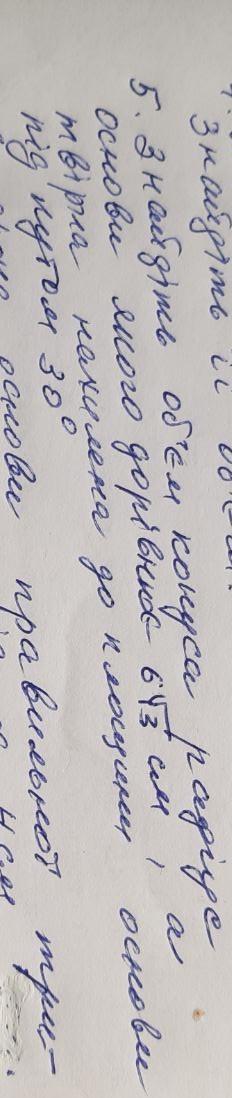 Знайдіть її об'єм.
5. Знайдіть об'єм конуса радіус
основи якого дорівнює 6√3 см, а
твірна нахилена до площини основи
під кутом 30°
основи правильної три-